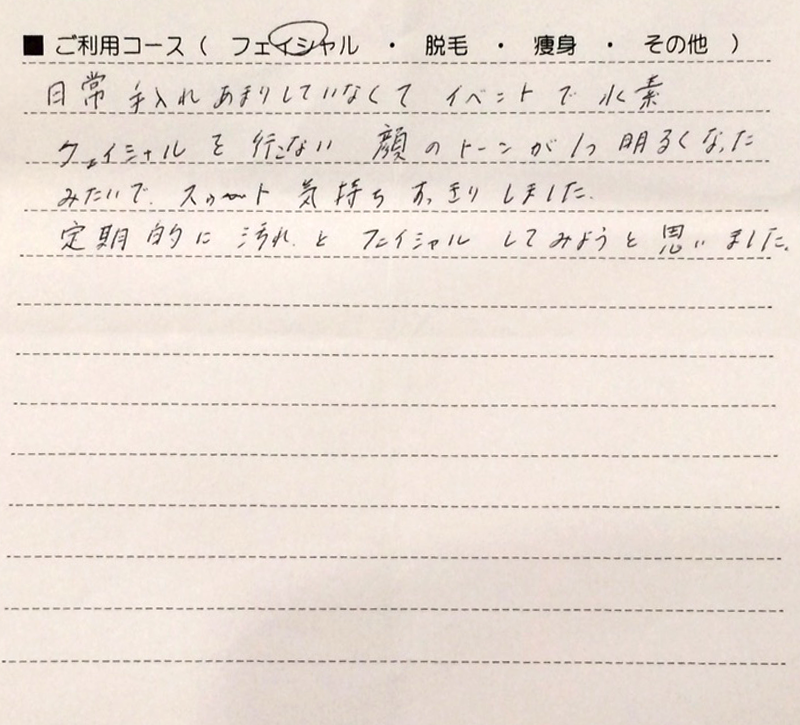 ■ ご利用コース（ フェイシャル ・ 脱毛 ・ 痩身 ・ その他 ）
日常 手入れ あまりしていなくて イベントで 水素
フェイシャル を 行こない 顔 の トーン が 1つ 明るくなった
みたいで、スゥート 気持ち すっきり しました.
定期的に 汚れ と フェイシャル してみようと 思いました.